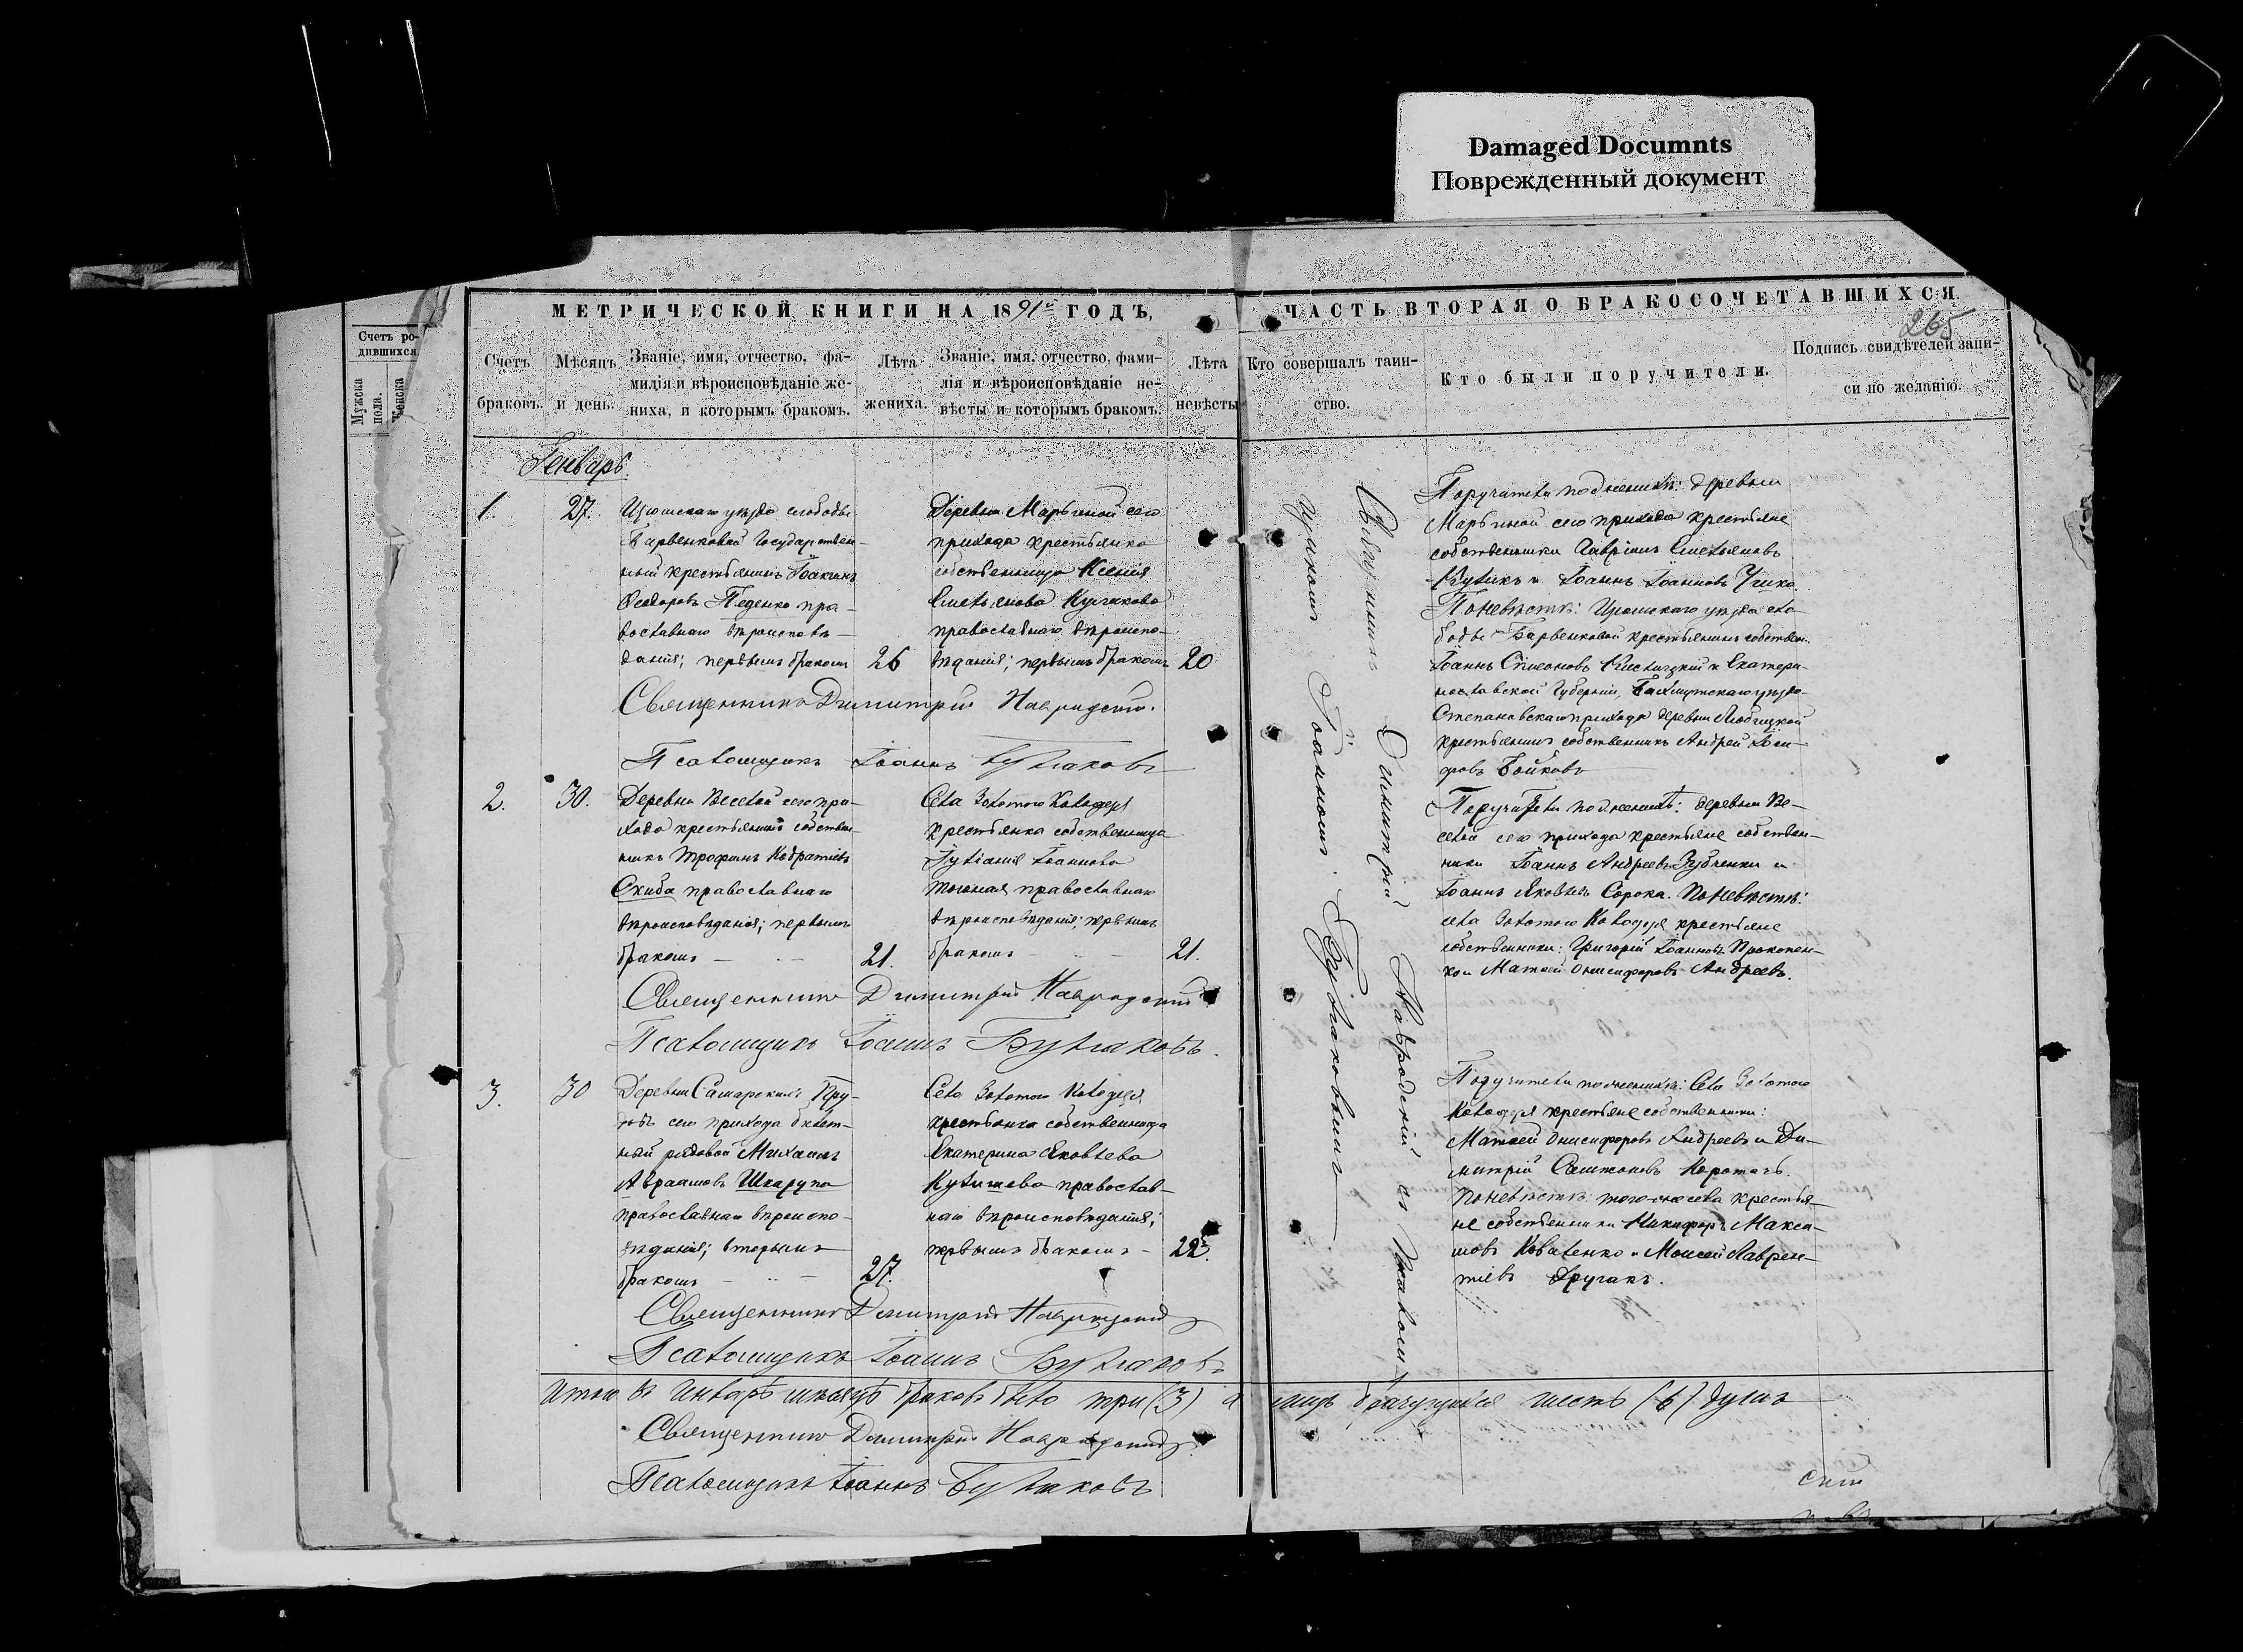 Damaged Documnts
Поврежденный документ
МЕТРИЧЕСКОЙ КНИГИ НА 1891й ГОДЪ,
ЧАСТЬ ВТОРАЯ О БРАКОСОЧЕТАВШИХСЯ.
265
Счетъ ро-
дившихся
Мужска
пола.
Женска
Счетъ
браковъ.
Мѣсяцъ
и день.
Званіе, имя, отчество, фа-
милія и вѣроисповѣданіе же-
ниха, и которымъ бракомъ.
Лѣта
жениха.
Званіе, имя, отчество, фами-
лія и вѣроисповѣданіе не-
вѣсты и которымъ бракомъ.
Лѣта
невѣсты
Кто совершалъ таин-
ство.
Кто были поручители.
Подпись свидѣтелей запи-
си по желанію.
Генварь.
1.
27.
Изюмскаго уѣзда слободы
Барвенковой Государствен-
ный крестьянинъ Іоакимъ
Ѳеодоровъ Педенко пра-
вославнаго вѣроисповѣ-
данія; первымъ бракомъ
26
Деревни Марьиной сего
прихода крестьянка
собственница Ксенія
Емельянова
православнаго вѣроиспо-
вѣданія; первымъ бракомъ
20
Священникъ Димитрій Навродскій.
Псаломщикъ Іоаннъ Булгаковъ
Поручители по женихѣ: деревни
Марьиной сего прихода крестьяне
собственники Гавріилъ Емельяновъ
Куликъ и Іоаннъ Іоанновъ
По невѣстѣ: Изюмскаго уѣзда сло-
боды Барвенковой крестьянинъ собствен.
Іоаннъ Симеоновъ и Екатери-
нославской Губерніи, Бахмутскаго уѣзда
Степановскаго прихода деревни
крестьянинъ собственникъ Андрей
Бойковъ
2.
30.
Деревни Веселой сего при-
хода крестьянинъ собствен-
никъ Трофимъ Кодратіевъ
Скиба православнаго
вѣроисповѣданія; первымъ
бракомъ
21.
Села Золотого Колодезя
крестьянка собственница
Іуліанія Іоаннова
православнаго
вѣроисповѣданія; первымъ
бракомъ
21.
Священникъ Димитрій Навродскій
Псаломщикъ Іоаннъ Булгаковъ.
Поручители по женихѣ: деревни Ве-
селой сего прихода крестьяне собствен-
ники Іоаннъ Андреевъ Зубченки и
Іоаннъ Яковлевъ Сорока. По невѣстѣ:
села Золотого Колодезя крестьяне
собственники: Григорій Іоанновъ Прокопен-
ко и Матѳей Онисифоровъ Андреевъ.
3.
30
Деревни Самарскихъ Пру-
довъ сего прихода билет-
ный рядовой Михаилъ
Авраамовъ Шкарупа
православнаго вѣроиспо-
вѣданія; вторымъ
бракомъ
27.
Села Золотого Колодезя
крестьянка собственница
Екатерина Яковлева
Кулишева православ-
наго вѣроисповѣданія;
первымъ бракомъ
22.
Священникъ Димитрій Навродскій
Псаломщикъ Іоаннъ Булгаковъ
Поручители по женихѣ: Села Золотого
Колодезя крестьяне собственники:
Матѳей Онисифоровъ Андреевъ и Ди-
митрій Коротачъ.
По невѣстѣ: того-же села крестья-
не собственники Никифоръ Макси-
мовъ Коваленко и Моисей Лаврен-
тіевъ Другакъ.
Священникъ Димитрій Навродскій съ Псалом-
щикомъ Іоанномъ Булгаковымъ
Итого въ Январѣ мѣсяцѣ браковъ было три (3) а лицъ брачущихся шесть (6) душъ
Священникъ Димитрій Навродскій
Псаломщикъ Іоаннъ Булгаковъ